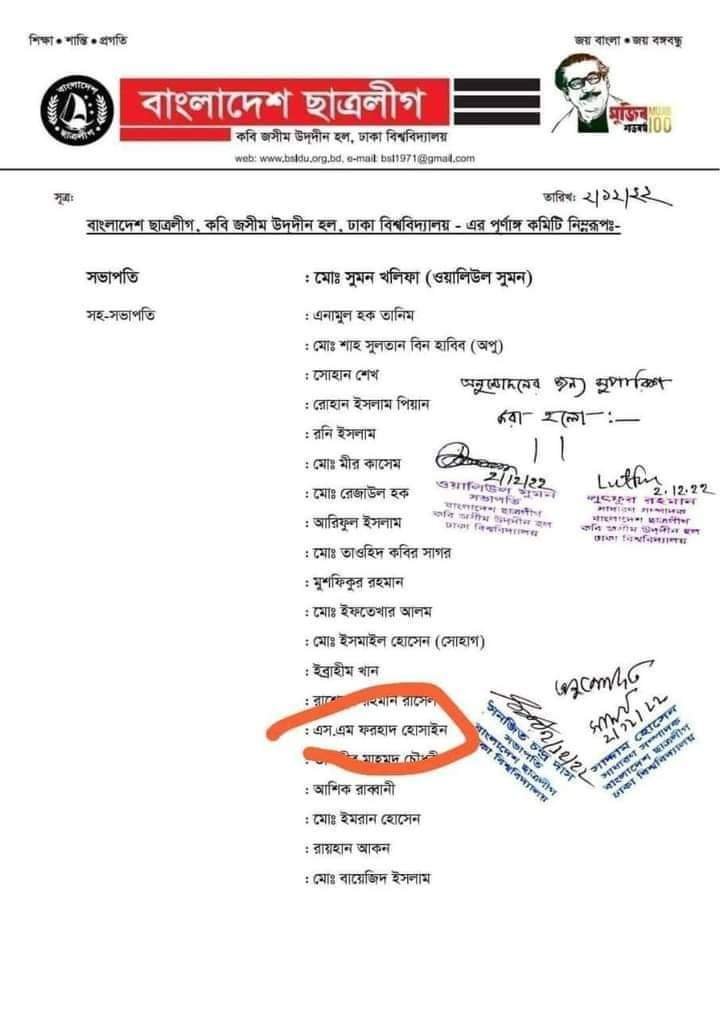 শিক্ষা ● শান্তি ● প্রগতি
জয় বাংলা ● জয় বঙ্গবন্ধু
বাংলাদেশ
ছাত্রলীগ
বাংলাদেশ ছাত্রলীগ
মুজিব
শতবর্ষ
100
কবি জসীম উদ্‌দীন হল, ঢাকা বিশ্ববিদ্যালয়
web: www.bsldu.org.bd, e-mail: bsl1971@gmail.com
সূত্র:
তারিখ: ২/১২/২২
বাংলাদেশ ছাত্রলীগ, কবি জসীম উদ্‌দীন হল, ঢাকা বিশ্ববিদ্যালয় - এর পূর্ণাঙ্গ কমিটি নিম্নরূপঃ-
সভাপতি : মোঃ সুমন খলিফা (ওয়ালিউল সুমন)
সহ-সভাপতি : এনামুল হক তানিম
: মোঃ শাহ সুলতান বিন হাবিব (অপু)
: সোহান শেখ
: রোহান ইসলাম পিয়ান
: রনি ইসলাম
: মোঃ মীর কাসেম
: মোঃ রেজাউল হক
: আরিফুল ইসলাম
: মোঃ তাওহিদ কবির সাগর
: মুশফিকুর রহমান
: মোঃ ইফতেখার আলম
: মোঃ ইসমাইল হোসেন (সোহাগ)
: ইব্রাহীম খান
: রহমান রাসেল
: এস.এম ফরহাদ হোসাইন
: মাহমুদ চৌধুরী
: আশিক রাব্বানী
: মোঃ ইমরান হোসেন
: রায়হান আকন
: মোঃ বায়েজিদ ইসলাম
অনুমোদনের জন্য সুপারিশ
করা হলো:—
2/12/22
ওয়ালিউল সুমন
সভাপতি
বাংলাদেশ ছাত্রলীগ
কবি জসীম উদ্‌দীন হল
ঢাকা বিশ্ববিদ্যালয়
2.12.22
লুৎফুর রহমান
সাধারণ সম্পাদক
বাংলাদেশ ছাত্রলীগ
কবি জসীম উদ্‌দীন হল
ঢাকা বিশ্ববিদ্যালয়
সনজিত চন্দ্র দাস
সভাপতি
বাংলাদেশ ছাত্রলীগ
ঢাকা বিশ্ববিদ্যালয়
অনুমোদিত
2/12/22
সাদ্দাম হোসেন
সাধারণ সম্পাদক
বাংলাদেশ ছাত্রলীগ
ঢাকা বিশ্ববিদ্যালয়